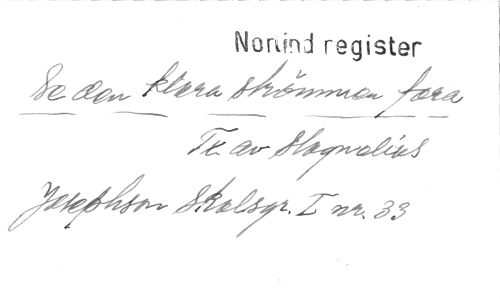 Norlind register
Se den klara strömmen fara
Tx av Stagnelius
Josephson Skolsgr. I nr. 33